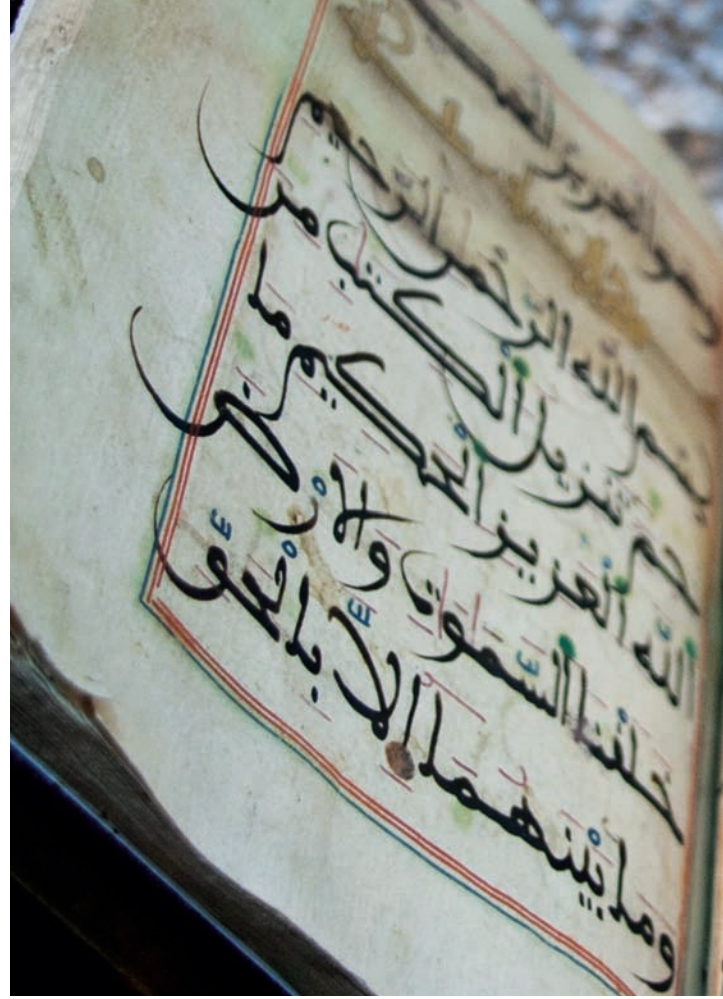 وهو العزيز الحكيم
بسم الله الرحمن الرحيم
حم تنزيل الكتب من
الله العزيز الحكيم ما
خلقنا السموت والارض
وما بينهما الا بالحق